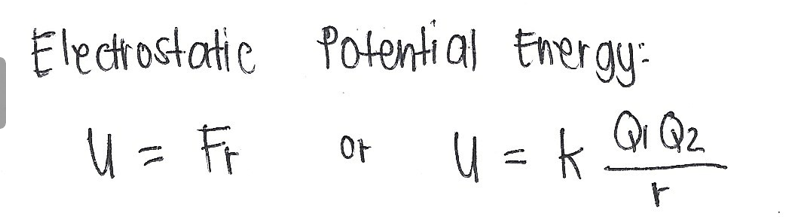 Electrostatic Potential Energy:
U = Fr or U = k Q1 Q2 / r